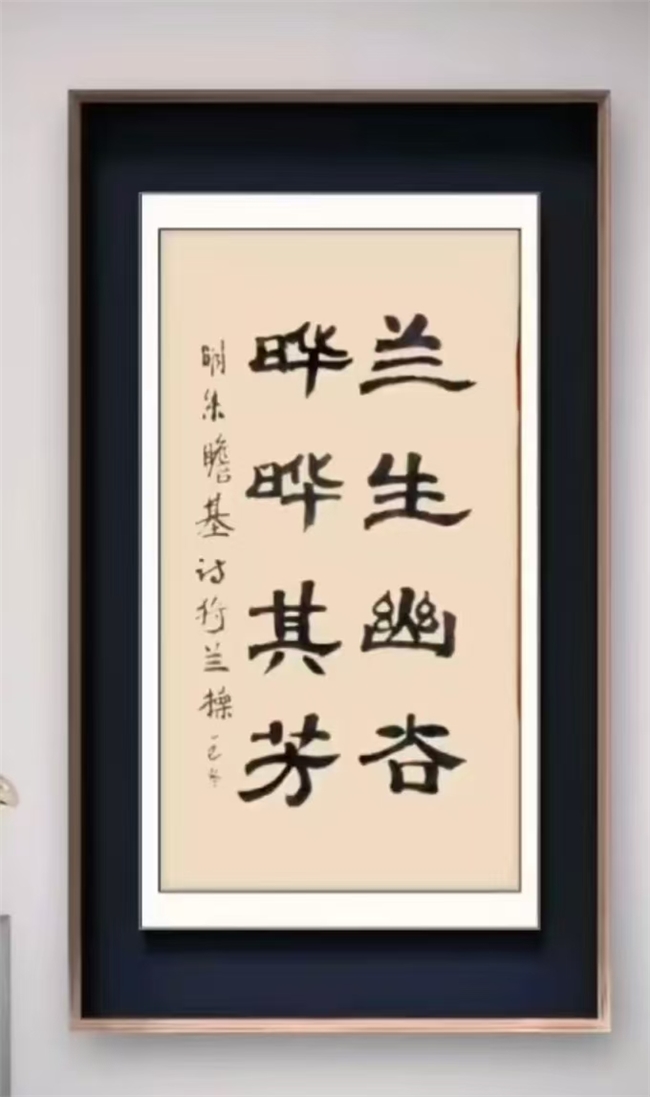 兰生幽谷
晔晔其芳
明朱瞻基诗猗兰操